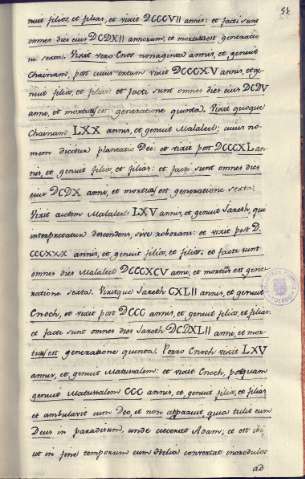 nuit filios, et filias, et vixit DCCCVII annos: et facti sunt
omnes dies eius DCDXII annorum, et mortuus generatio
ne sexta. Vixit vero Enos nonaginta annis, et genuit
Chainam, post cuius ortum vixit DCCCXV annis, et ge
nuit filios, et filias: et facti sunt omnes dies eius DCDV
anno, et mortuus est generatione quinta. Vixit quoque
Chainam LXX annis, et genuit Malaleel, cuius no
men dicitur plantatio Dei: et vixit post DCCCXL an
nis, et genuit filios, et filias: et facti sunt omnes dies
eius DCDX anno, et mortuus est generatione sexta:
Vixit autem Malaleel LXV annis, et genuit Jareth, qui
interpretatur descendens, sive roborans: et vixit post D
CCCXXX annis, et genuit filios, et filias: et facti sunt
omnes dies Malaleel DCCCXCV anno, et mortuus est gene
ratione sexta. Vixitque Jareth CXLII annis, et genuit
Enoch, et vixit post DCCC annis, et genuit filios, et filias:
et facti sunt omnes dies Jareth DCDXLII anno, et mor
tuus est generatione quinta: Porro Enoch vixit LXV
annis, et genuit Matusalem: et vixit Enoch, postquam
genuit Matusalem CCC annis, et genuit filios, et filias
et ambulavit cum Deo, et non apparuit quia tulit eum
Deus in paradisum, unde
ut in fine temporum cum
ad